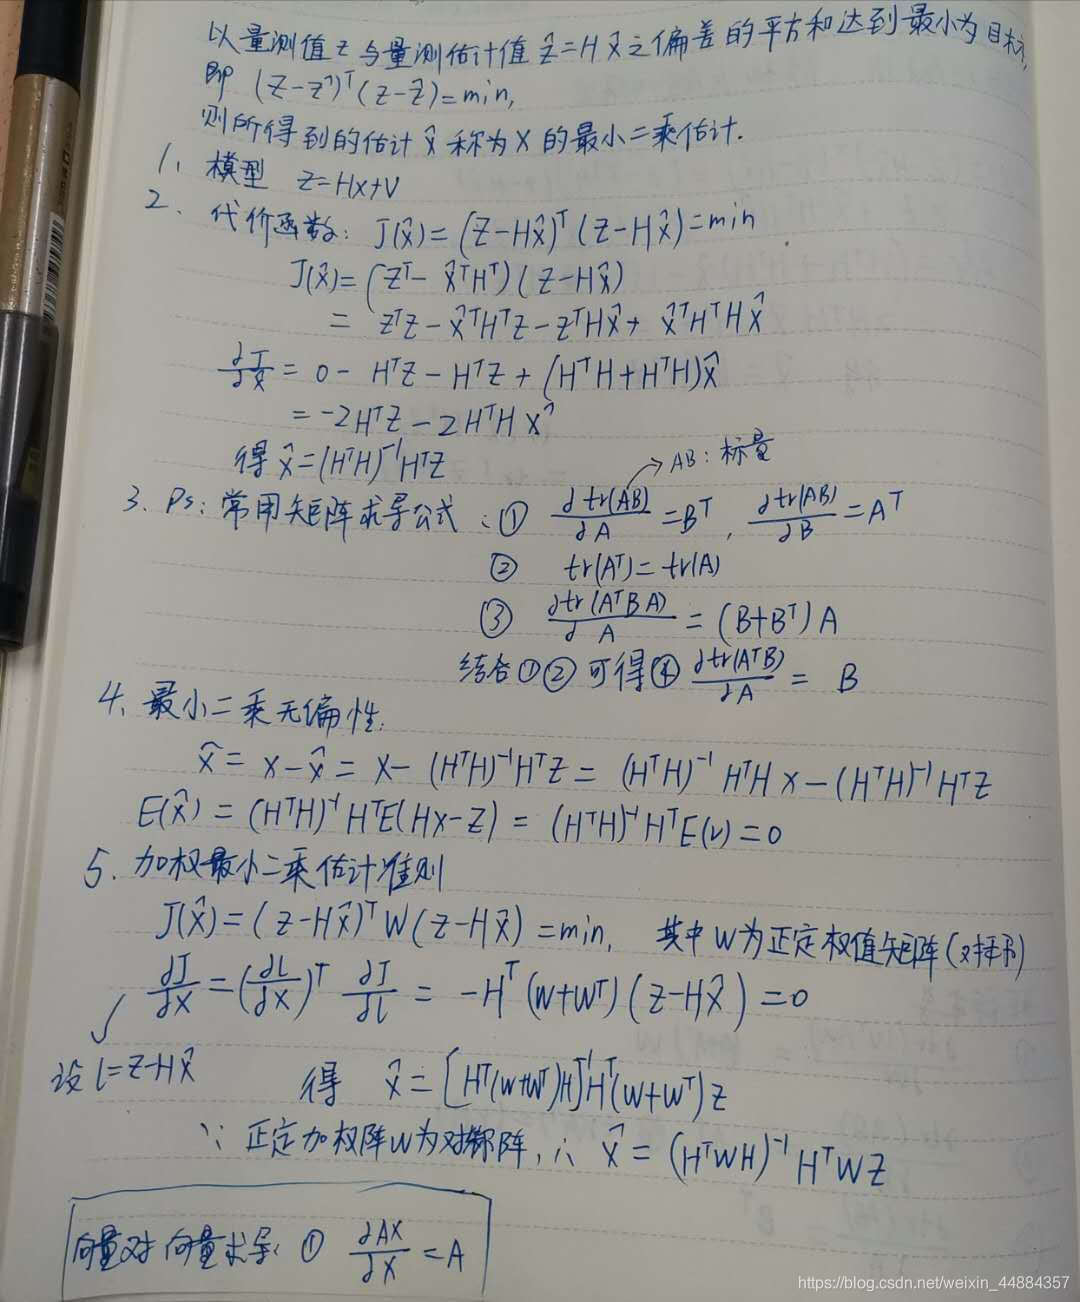 以量测值 z 与量测估计值 ẑ=Hx̂ 之偏差的平方和达到最小为目标,
即 (Z-Ẑ)ᵀ(z-ẑ)=min,
则所得到的估计 x̂ 称为 X 的最小二乘估计.
1、模型 Z=Hx+V
2、代价函数: J(x̂)=(Z-Hx̂)ᵀ(Z-Hx̂)=min
J(x̂)=(Zᵀ-x̂ᵀHᵀ)(z-Hx̂)
= ZᵀZ-x̂ᵀHᵀZ-ZᵀHx̂+x̂ᵀHᵀHx̂
∂J/∂x̂ = 0-HᵀZ-HᵀZ+(HᵀH+HᵀH)x̂
=-2HᵀZ-2HᵀHx̂
得 x̂=(HᵀH)⁻¹HᵀZ
→AB: 标量
3、Ps: 常用矩阵求导公式: ① ∂tr(AB)/∂A =Bᵀ, ∂tr(AB)/∂B =Aᵀ
② tr(Aᵀ)=tr(A)
③ ∂tr(AᵀBA)/∂A = (B+Bᵀ)A
结合①②可得④ ∂tr(AᵀB)/∂A = B
4、最小二乘无偏性:
x̂ = x-x̂ = x-(HᵀH)⁻¹HᵀZ = (HᵀH)⁻¹HᵀHx-(HᵀH)⁻¹HᵀZ
E(x̂) = (HᵀH)⁻¹HᵀE(Hx-Z) = (HᵀH)⁻¹HᵀE(v)=0
5、加权最小二乘估计准则
J(x̂)=(z-Hx̂)ᵀW(z-Hx̂)=min, 其中W为正定权值矩阵(对称)
∂J/∂x = (∂l/∂x)ᵀ ∂J/∂l = -Hᵀ(W+Wᵀ)(z-Hx̂)=0
设 l=z-Hx̂ 得 x̂=[Hᵀ(W+Wᵀ)H]⁻¹Hᵀ(W+Wᵀ)z
∵ 正定加权阵W为对称阵, ∴ x̂ = (HᵀWH)⁻¹HᵀWZ
向量对向量求导: ① ∂AX/∂X = A
https://blog.csdn.net/weixin_44884357